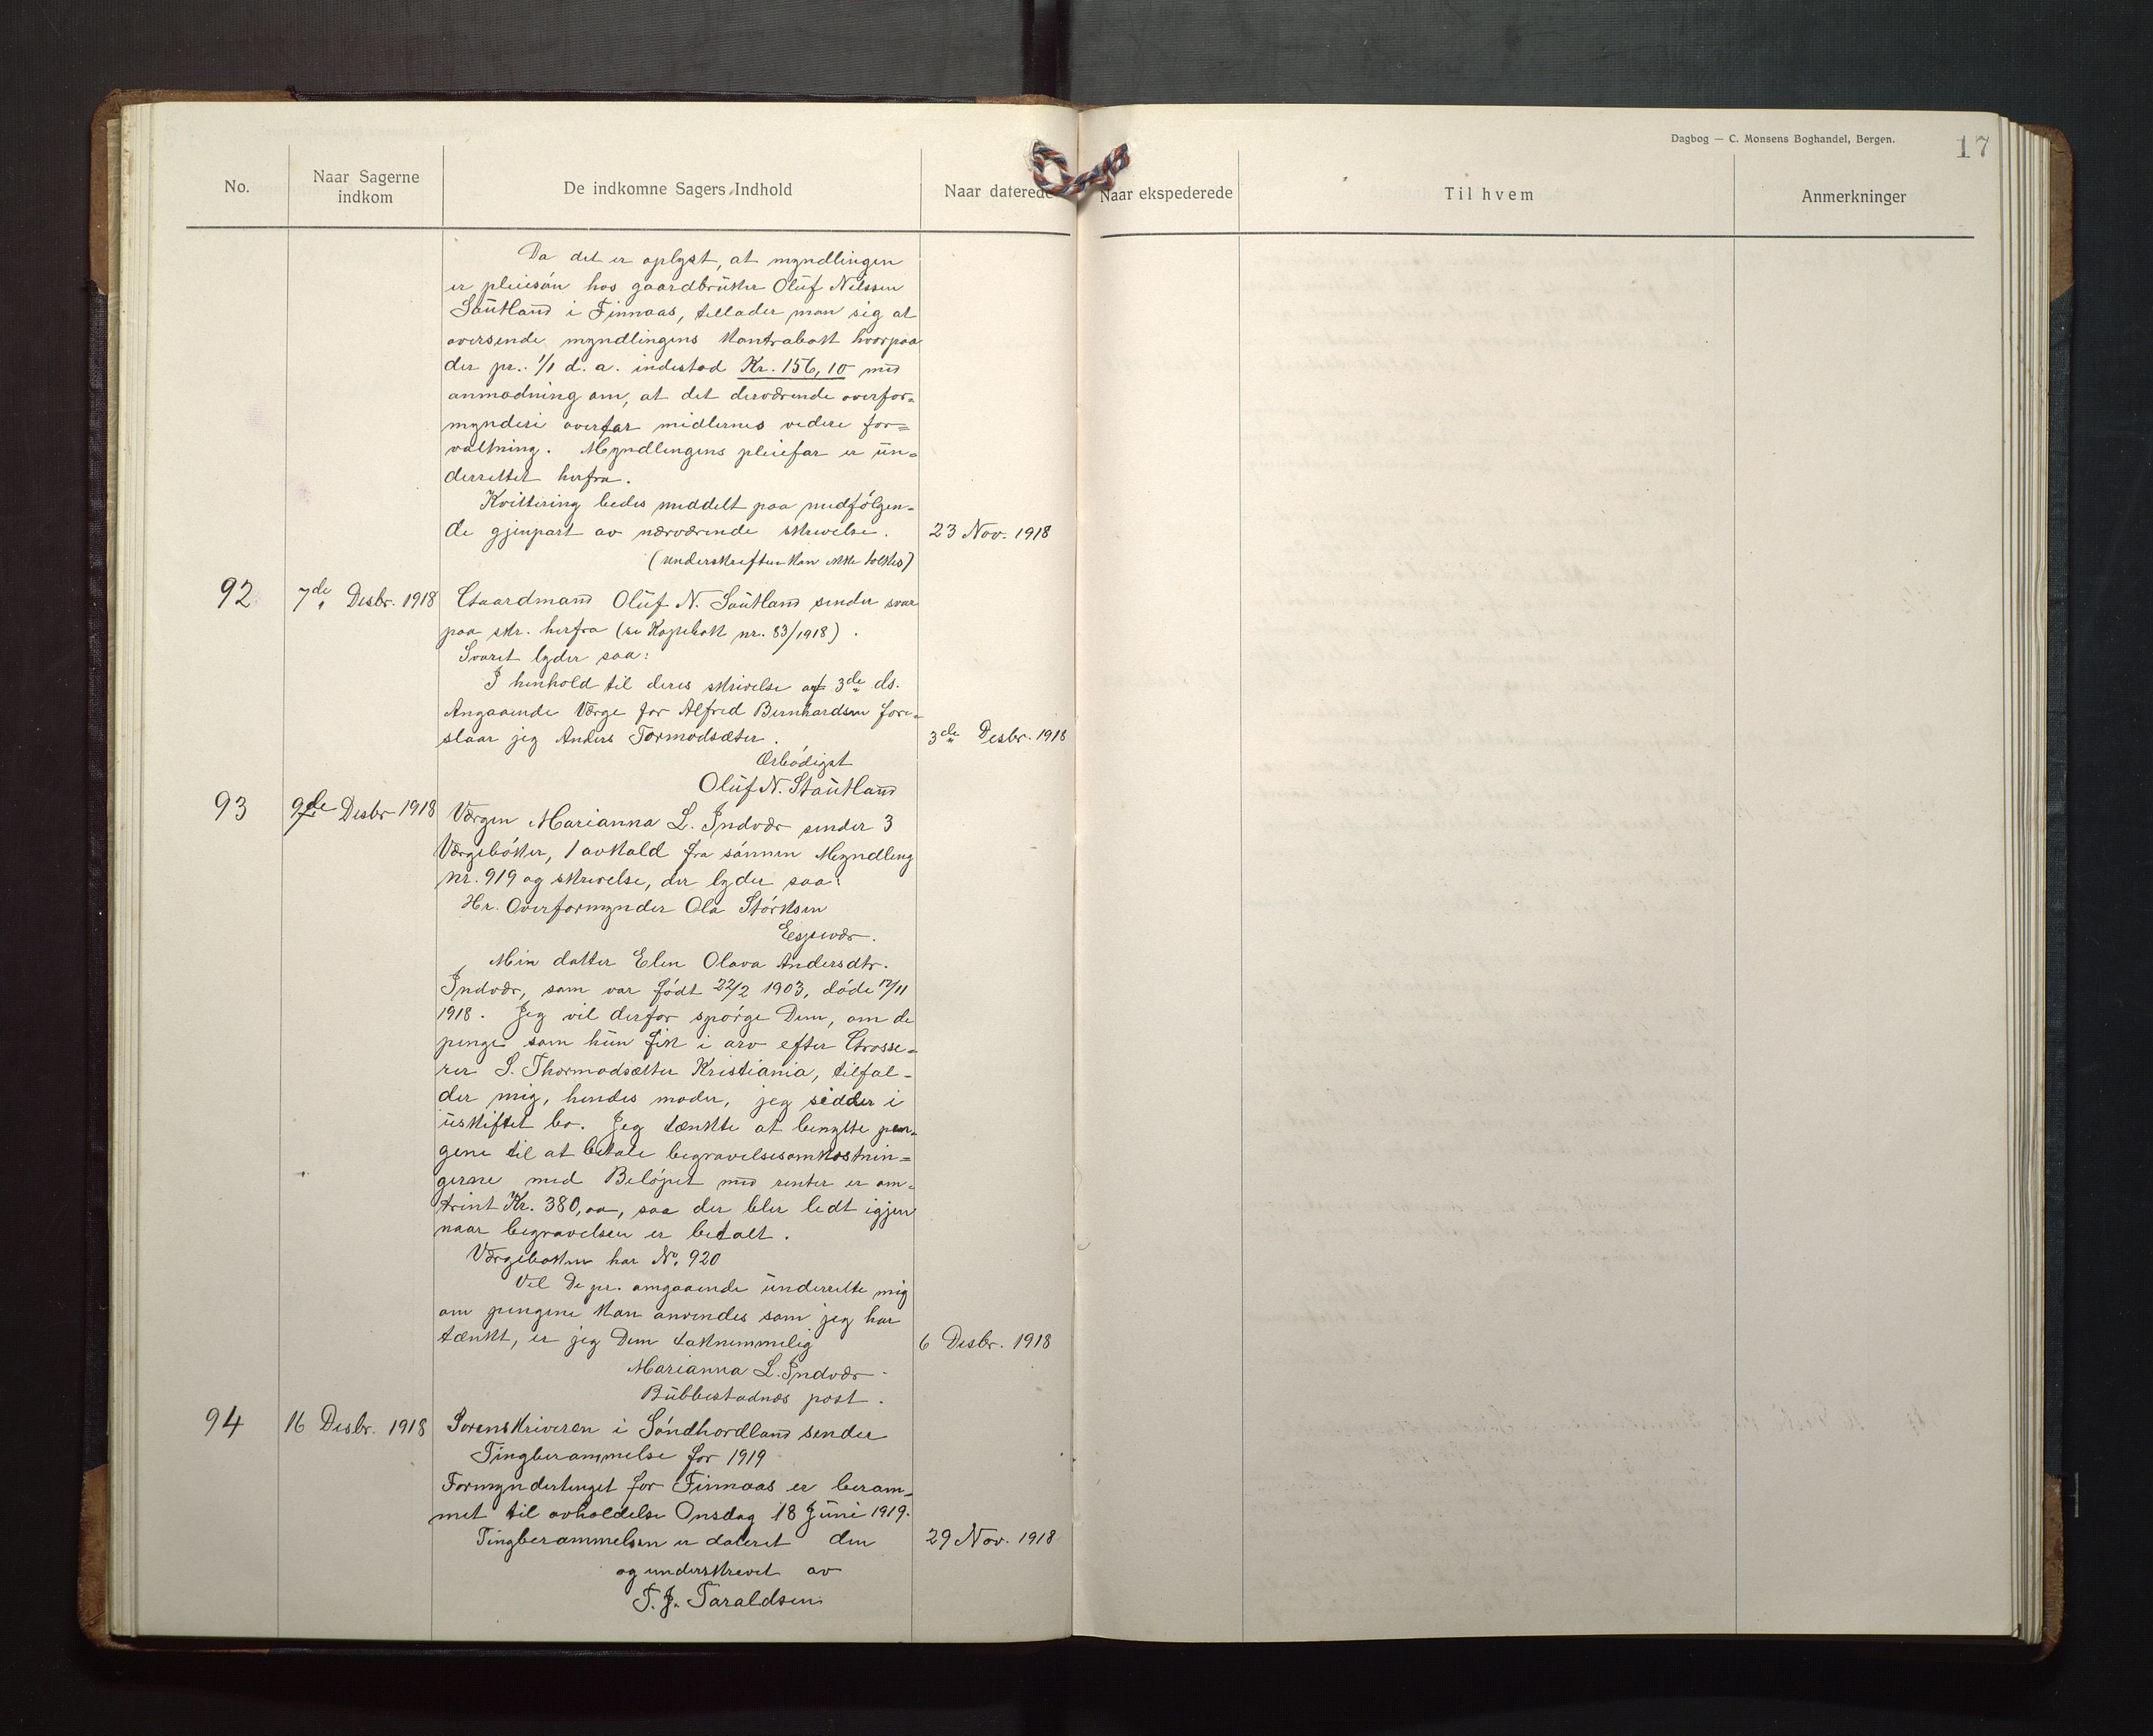 Dagbog — C. Monsens Boghandel, Bergen.
17
No.
Naar Sagerne indkom
De indkomne Sagers Indhold
Naar daterede
Naar ekspederede
Til hvem
Anmerkninger
Da det er oplyst, at myndlingen
er pleiesøn hos gaardbruker Oluf Nilssen
Sautland i Finnaas, tillader man sig at
oversende myndlingens Kontrabok hvorpaa
der pr. 1/1 d. a. indestod Kr. 156,10 med
anmodning om, at det derværende overfor=
mynderi overtar midlernes videre for=
valtning. Myndlingens pleiefar er un=
derrettet herfra.
Kvittering bedes meddelt paa medfølgen=
de gjenpart av nærværende skrivelse. 23 Nov. 1918
(underskriften kan ikke tolkes)
92 7de Desbr. 1918 Gaardmand Oluf N. Sautland sender svar
paa skr. herfra (se Kopibok nr. 83/1918).
Svaret lyder saa:
I henhold til deres skrivelse af 3de ds.
Angaaende Værge for Alfred Bernhardsen fore=
slaar jeg Anders Tormodsæter. 3de Desbr. 1918
Ærbødigst
Oluf N. Stautland
93 9de Desbr 1918 Værgen Marianna L. Indvær sender 3
Værgebøker, 1 avkald fra sønnen Myndling
nr. 919 og skrivelse, der lyder saa:
Hr. Overformynder Ola Størksen
Espevær.
Min datter Elen Olava Andersdtr.
Indvær, som var født 22/2 1903, døde 17/11
1918. Jeg vil derfor spørge Dem, om de
penge som hun fik i arv efter Grosse=
rer S. Thormodsætter Kristiania, tilfal=
der mig, hendes moder, jeg sidder i
uskiftet bo. Jeg tænkte at benytte pen=
gene til at betale begravelsesomkostnin=
gerne med Beløpet med renter er om=
trint Kr. 380,oo, saa der blir ledt igjen
naar begravelsen er betalt.
Værgeboken har No. 920
Vil De pr. omgaaende underrette mig
om pengene kan anvendes som jeg har
tænkt, er jeg Dem taknemmelig 6 Desbr. 1918
Marianna L. Indvær
Bubbestadnes post.
94 16 Desbr. 1918 Sorenskriveren i Søndhordland sender
Tingberammelse for 1919
Formyndertinget for Finnaas er beram=
met til avholdelse Onsdag 18 Juni 1919.
Tingberammelsen er dateret den 29 Nov. 1918
og underskrevet av
T. J. Taraldsen